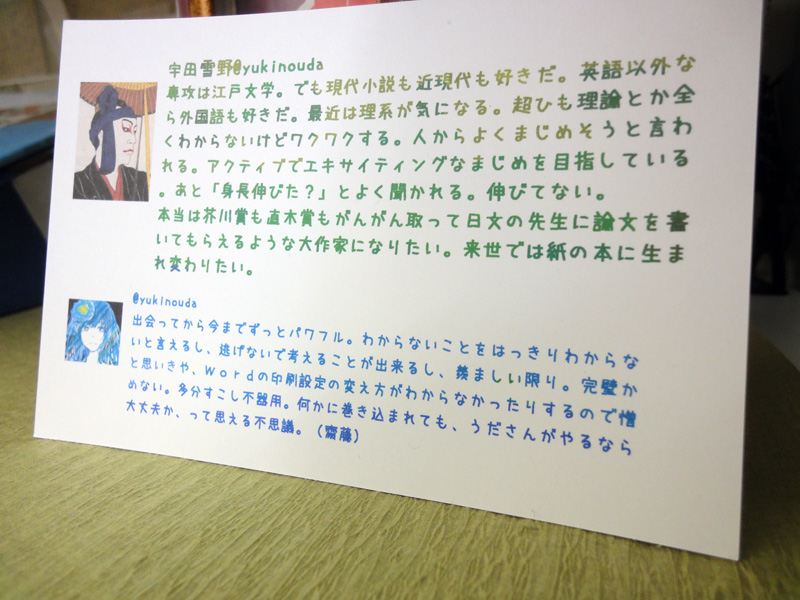 宇田雪野@yukinouda
専攻は江戸文学。でも現代小説も近現代も好きだ。英語以外な
ら外国語も好きだ。最近は理系が気になる。超ひも理論とか全
くわからないけどワクワクする。人からよくまじめそうと言わ
れる。アクティブでエキサイティングなまじめを目指している
。あと「身長伸びた？」とよく聞かれる。伸びてない。
本当は芥川賞も直木賞もがんがん取って日文の先生に論文を書
いてもらえるような大作家になりたい。来世では紙の本に生ま
れ変わりたい。
@yukinouda
出会ってから今までずっとパワフル。わからないことをはっきりわからな
いと言えるし、逃げないで考えることが出来るし、羨ましい限り。完璧か
と思いきや、Wordの印刷設定の変え方がわからなかったりするので憎
めない。多分すこし不器用。何かに巻き込まれても、うださんがやるなら
大丈夫か、って思える不思議。（齋藤）